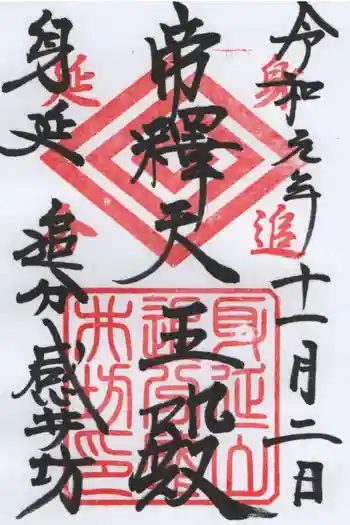 令和元年十一月二日
帝釋天王殿
身延
追分感井坊
身
追
延
分
身延山
追分感
井坊印